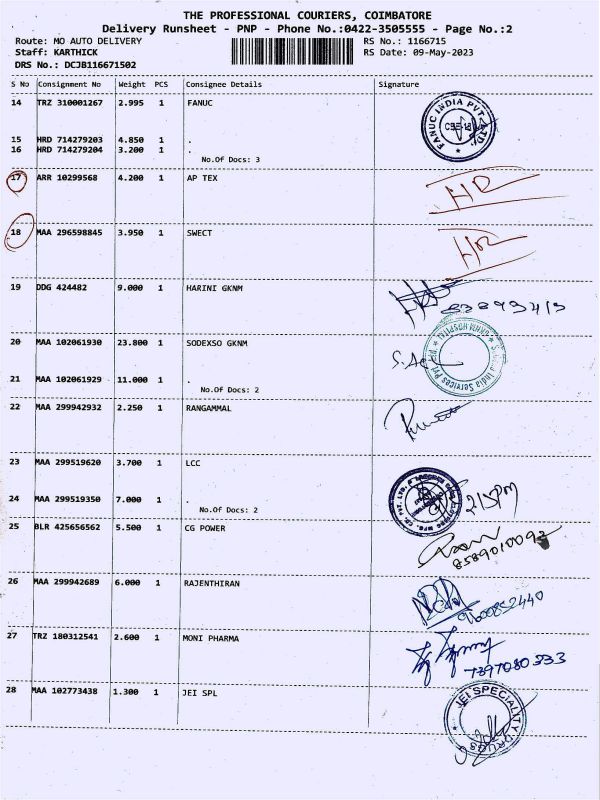 THE PROFESSIONAL COURIERS, COIMBATORE
Delivery Runsheet - PNP - Phone No.:0422-3505555 - Page No.:2
Route: MO AUTO DELIVERY RS No.: 1166715
Staff: KARTHICK RS Date: 09-May-2023
DRS No.: DCJB116671502
S No Consignment No Weight PCS Consignee Details Signature
14 TRZ 310001267 2.995 1 FANUC
FANUC INDIA PVT. LTD.
CBE-18
15 HRD 714279203 4.850 1 .
16 HRD 714279204 3.200 1 .
No.Of Docs: 3
17 ARR 10299568 4.200 1 AP TEX
18 MAA 296598845 3.950 1 SWECT
19 DDG 424482 9.000 1 HARINI GKNM
20 MAA 102061930 23.800 1 SODEXSO GKNM
GKNM HOSPITAL
India Services Pvt.
21 MAA 102061929 11.000 1 .
No.Of Docs: 2
22 MAA 299942932 2.250 1 RANGAMMAL
23 MAA 299519620 3.700 1 LCC
24 MAA 299519350 7.000 1 .
No.Of Docs: 2
25 BLR 425656562 5.500 1 CG POWER
26 MAA 299942689 6.000 1 RAJENTHIRAN
27 TRZ 180312541 2.600 1 MONI PHARMA
7397080333
28 MAA 102773438 1.300 1 JEI SPL
JEI SPECIALITY DRUGS